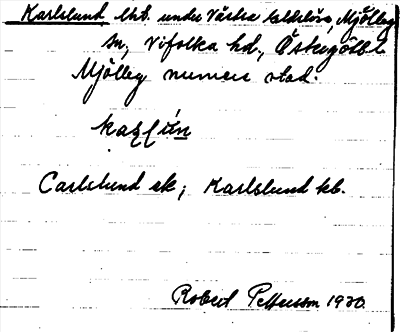 Karlslund lht. under Västra Solberga, Mjölby
sn, Vifolka hd., Östergötl.
Mjölby numera stad.
Carlslund ek; Karlslund kb.
Robert Pettersson 1930.